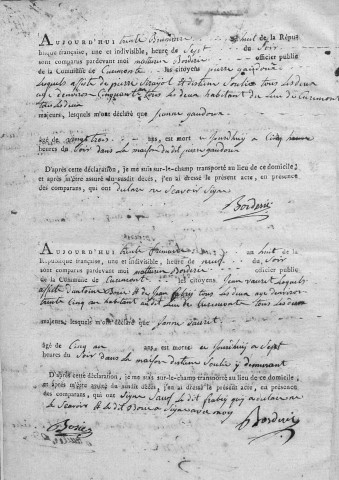 AUJOURD'HUI trente Brumaire an huit de la Répu-
blique française, une et indivisible, heure de Sept du Soir
sont comparus pardevant moi mathieu Borderie officier public
de la Commune de Curemonte les citoyens pierre gaudoux
lesquels assisté de pierre et d'étienne Soulié tous les deux
agé d'environ Cinquante tous les deux habitant du lieu de Curemonte
tous les deux
majeurs, lesquels m'ont déclaré que jeanne gaudoux
âgé de vingt trois ans, est mort ce jourdhuy a Cinq
heures du Soir dans la maison du dit pierre gaudoux
D'après cette déclaration, je me suis sur-le-champ transporté au lieu de ce domicile;
et après m'être assuré du-dit décès, j'ai dressé le présent acte, en présence
des comparans, qui ont declaré ne Scavoir Signer
Borderie
AUJOURD'HUI trente frimaire an huit de la
République française, une et indivisible, heure de neuf du Soir
sont comparus pardevant moi mathieu Borderie officier public
de la Commune de Curemont les citoyens Jean vauret lesquels
assisté d'antoine et de Jean fabry tous les deux age d'environ
trente cinq an habitant du dit lieu de Curemonte tous les deux
majeurs, lesquels m'ont déclaré que Jeanne Vauret
âgé de Cinq ans, est mort ce Jourdhuy a Sept
heures du Soir dans la maison d'etiene Soulié y demeurant
D'après cette déclaration, je me suis sur-le-champ transporté au lieu de ce domicile,
et après m'être assuré du-dit décès, j'ai dressé le présent acte, en présence
des comparans, qui ont Signé Sauf le dit fabry qui a declaré ne
le Scavoir et le dit a Signé avec moy
Borderie